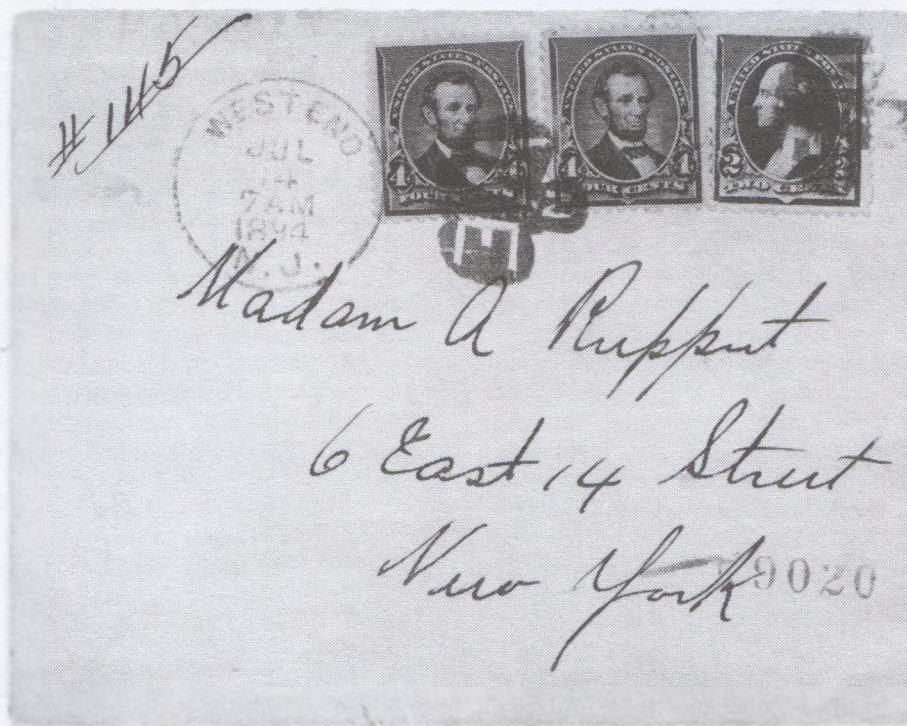 #145
WEST END
JUL
14
7AM
1894
N.J.
UNITED STATES POSTAGE
4 4
FOUR CENTS
UNITED STATES POSTAGE
4 4
FOUR CENTS
UNITED STATES POSTAGE
2 2
TWO CENTS
Madam A Ruppert
6 East 14 Street
New York
9020